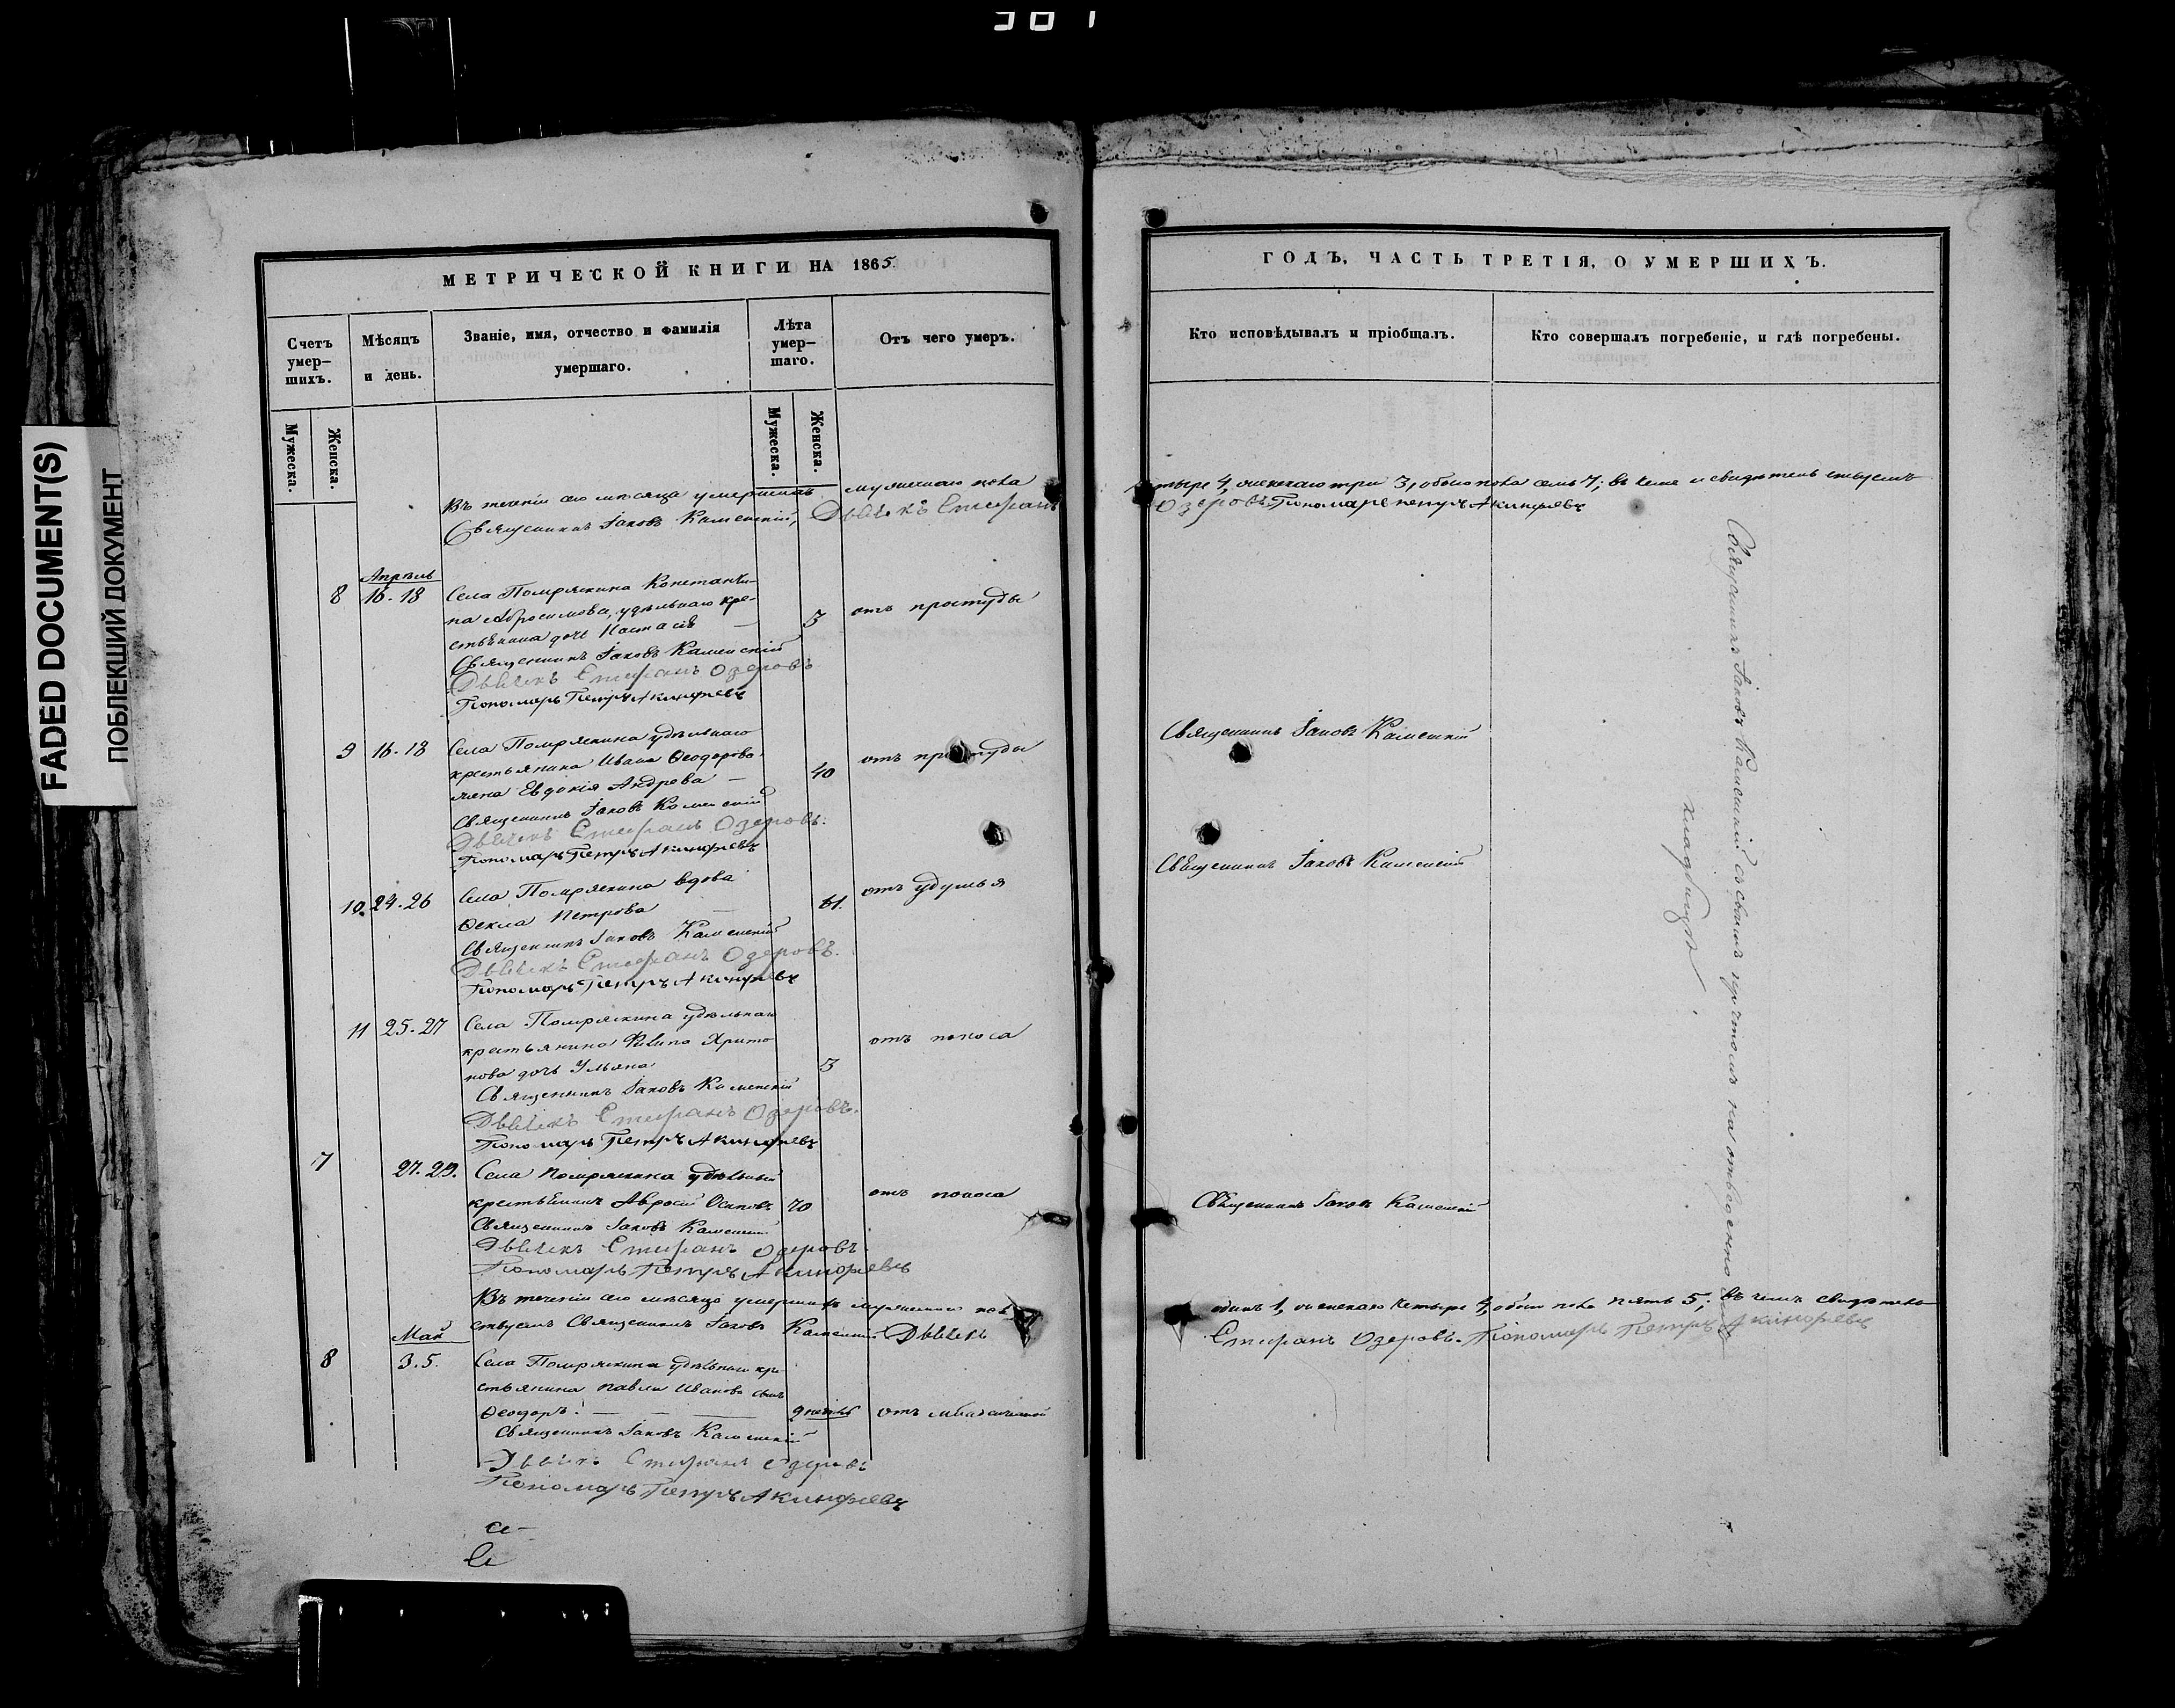 381
FADED DOCUMENT(S)
ПОБЛЕКШИЙ ДОКУМЕНТ
МЕТРИЧЕСКОЙ КНИГИ НА 1865.
Счетъ умер-
шихъ.
Мѣсяцъ
и день.
Званіе, имя, отчество и фамилія
умершаго.
Лѣта
умер-
шаго.
Отъ чего умеръ.
Мужеска.
Женска.
Мужеска.
Женска.
Въ теченіи сего мѣсяца умершихъ мужескаго пола
Священникъ Іаковъ Каменскій, Дьячекъ Стефанъ
Апрѣль
8 16. 18 Села Помряскина Константи-
на Абросимова, удѣльнаго кре-
стьянина дочь Настасія — 3 отъ простуды
Священникъ Іаковъ Каменскій
Дьячекъ Стефанъ Озеровъ
Пономарь Петръ Акинфіевъ
9 16. 18 Села Помряскина удѣльнаго
крестьянина Ивана Ѳеодорова
жена Евдокія Андрева — 40 отъ простуды
Священникъ Іаковъ Каменскій
Дьячекъ Стефанъ Озеровъ.
Пономарь Петръ Акинфіевъ
10. 24. 26 Села Помряскина вдова
Ѳекла Петрова — 61. отъ удушья
Священникъ Іаковъ Каменскій
Дьячекъ Стефанъ Озеровъ.
Пономарь Петръ Акинфіевъ
11 25. 27 Села Помряскина удѣльнаго
крестьянина Филипа Харито
нова дочь Ульяна 3 отъ поноса
Священникъ Іаковъ Каменскій
Дьячекъ Стефанъ Озеровъ.
Пономарь Петръ Акинфіевъ
7 27. 29. Села Помряскина удѣльный
крестьянинъ Абросій Осиповъ 70 отъ поноса
Священникъ Іаковъ Каменскій
Дьячекъ Стефанъ Озеровъ
Пономарь Петръ Акинфіевъ
Въ теченіи сего мѣсяца умершихъ мужескаго пола
ствуемъ Священникъ Іаковъ Каменскій Дьячекъ
Май
8 3. 5. Села Помряскина удѣльнаго кре
стьянина Павла Иванова сынъ
Ѳеодоръ. — — отъ
Священникъ Іаковъ Каменскій
Дьячекъ Стефанъ Озеровъ
Пономарь Петръ Акинфіевъ
ГОДЪ, ЧАСТЬ ТРЕТІЯ, О УМЕРШИХЪ.
Кто исповѣдывалъ и пріобщалъ.
Кто совершалъ погребеніе, и гдѣ погребены.
четыре 4, женскаго три 3, обоего пола семь 7; въ чемъ и свидѣтельствуемъ
Озеровъ. Пономарь Петръ Акинфіевъ
Священникъ Іаковъ Каменскій
Священникъ Іаковъ Каменскій
Священникъ Іаковъ Каменскій
одинъ 1, женскаго четыре 4, обоего пола пять 5; въ чемъ свидѣтель
Стефанъ Озеровъ. Пономарь Петръ Акинфіевъ
Священникъ Іаковъ Каменскій съ своимъ причтомъ на отведенномъ
кладбищѣ.